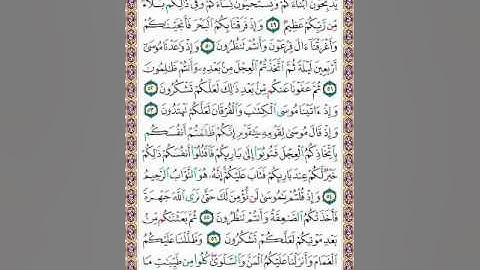 يُذَبِّحُونَ أَبْنَاءَكُمْ وَيَسْتَحْيُونَ نِسَاءَكُمْ وَفِي ذَلِكُمْ بَلَاءٌ
مِنْ رَبِّكُمْ عَظِيمٌ ٤٩ وَإِذْ فَرَقْنَا بِكُمُ الْبَحْرَ فَأَنْجَيْنَاكُمْ
وَأَغْرَقْنَا آلَ فِرْعَوْنَ وَأَنْتُمْ تَنْظُرُونَ ٥٠ وَإِذْ وَعَدْنَا مُوسَى
أَرْبَعِينَ لَيْلَةً ثُمَّ اتَّخَذْتُمُ الْعِجْلَ مِنْ بَعْدِهِ وَأَنْتُمْ ظَالِمُونَ
٥١ ثُمَّ عَفَوْنَا عَنْكُمْ مِنْ بَعْدِ ذَلِكَ لَعَلَّكُمْ تَشْكُرُونَ ٥٢
وَإِذْ آتَيْنَا مُوسَى الْكِتَابَ وَالْفُرْقَانَ لَعَلَّكُمْ تَهْتَدُونَ ٥٣
وَإِذْ قَالَ مُوسَى لِقَوْمِهِ يَا قَوْمِ إِنَّكُمْ ظَلَمْتُمْ أَنْفُسَكُمْ
بِاتِّخَاذِكُمُ الْعِجْلَ فَتُوبُوا إِلَى بَارِئِكُمْ فَاقْتُلُوا أَنْفُسَكُمْ ذَلِكُمْ
خَيْرٌ لَكُمْ عِنْدَ بَارِئِكُمْ فَتَابَ عَلَيْكُمْ إِنَّهُ هُوَ التَّوَّابُ الرَّحِيمُ
٥٤ وَإِذْ قُلْتُمْ يَا مُوسَى لَنْ نُؤْمِنَ لَكَ حَتَّى نَرَى اللَّهَ جَهْرَةً
فَأَخَذَتْكُمُ الصَّاعِقَةُ وَأَنْتُمْ تَنْظُرُونَ ٥٥ ثُمَّ بَعَثْنَاكُمْ مِنْ
بَعْدِ مَوْتِكُمْ لَعَلَّكُمْ تَشْكُرُونَ ٥٦ وَظَلَّلْنَا عَلَيْكُمُ
الْغَمَامَ وَأَنْزَلْنَا عَلَيْكُمُ الْمَنَّ وَالسَّلْوَى كُلُوا مِنْ طَيِّبَاتِ مَا